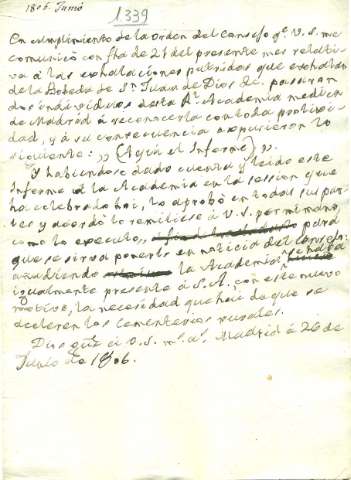 1806. Junio
1339
En cumplimiento de la Orden del Consejo qe. V. S. me
comunicó con fha de 21 del presente mes relati-
va á las exhalaciones putridas que exhalan
de la Bobeda de Sn. Juan de Dios &c. passaron
dos individuos desta Rl. Academia medica
de Madrid á reconocerla con toda prolixi-
dad, y á su consecuencia expusieron lo
siguiente: ,, (Aqui el Informe) ,,
Y habiendose dado cuenta y leido este
Informe a la Academia en la session que
ha celebrado hoi, lo aprobó en todas sus par-
tes y acordó lo remitiese á V. S. por mi mano,
como lo executo, para
que se sirva ponerlo en noticia del Consejo:
añadiendo la Academia
igualmente presente á S. A. con este nuevo
motivo, la necesidad que hai de que se
aceleren los Cementerios rurales.
Dios gue. á V. S. ms. as. Madrid á 26 de
Junio de 1806.